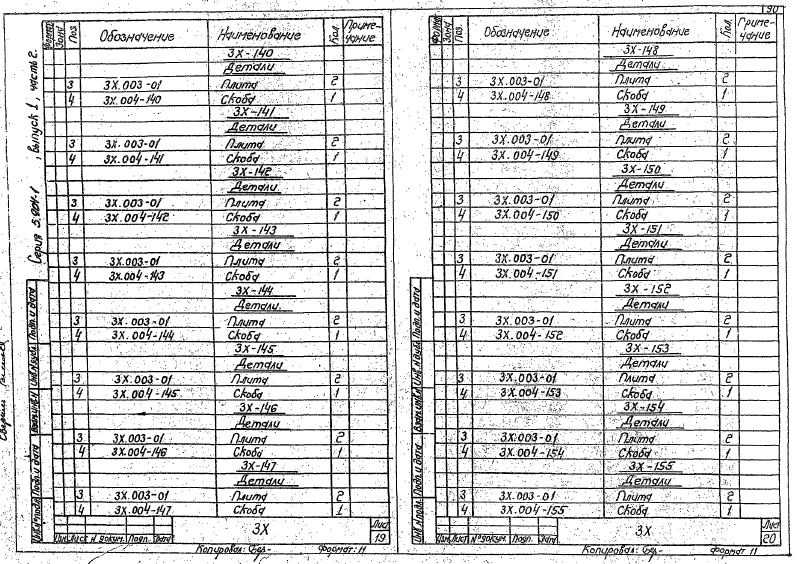 190
Формат Зона Поз. Обозначение Наименование Кол. Приме-чание
3Х-140
Детали
3 3Х.003-01 Плита 2
4 3Х.004-140 Скоба 1
3Х-141
Детали
3 3Х.003-01 Плита 2
4 3Х.004-141 Скоба 1
3Х-142
Детали
3 3Х.003-01 Плита 2
4 3Х.004-142 Скоба 1
3Х-143
Детали
3 3Х.003-01 Плита 2
4 3Х.004-143 Скоба 1
3Х-144
Детали
3 3Х.003-01 Плита 2
4 3Х.004-144 Скоба 1
3Х-145
Детали
3 3Х.003-01 Плита 2
4 3Х.004-145 Скоба 1
3Х-146
Детали
3 3Х.003-01 Плита 2
4 3Х.004-146 Скоба 1
3Х-147
Детали
3 3Х.003-01 Плита 2
4 3Х.004-147 Скоба 1
3Х
Лист
19
Изм. Лист N докум. Подп. Дата
Копировал: Формат: 11
Серия , Выпуск 1, часть 2.
Инв.N подл. Подп. и дата Взам.инв.N Инв.N дубл. Подп. и дата
Формат Зона Поз. Обозначение Наименование Кол. Приме-чание
3Х-148
Детали
3 3Х.003-01 Плита 2
4 3Х.004-148 Скоба 1
3Х-149
Детали
3 3Х.003-01 Плита 2
4 3Х.004-149 Скоба 1
3Х-150
Детали
3 3Х.003-01 Плита 2
4 3Х.004-150 Скоба 1
3Х-151
Детали
3 3Х.003-01 Плита 2
4 3Х.004-151 Скоба 1
3Х-152
Детали
3 3Х.003-01 Плита 2
4 3Х.004-152 Скоба 1
3Х-153
Детали
3 3Х.003-01 Плита 2
4 3Х.004-153 Скоба 1
3Х-154
Детали
3 3Х.003-01 Плита 2
4 3Х.004-154 Скоба 1
3Х-155
Детали
3 3Х.003-01 Плита 2
4 3Х.004-155 Скоба 1
3Х
Лист
20
Изм. Лист N докум. Подп. Дата
Копировал: Формат 11
Инв.N подл. Подп. и дата Взам.инв.N Инв.N дубл. Подп. и дата